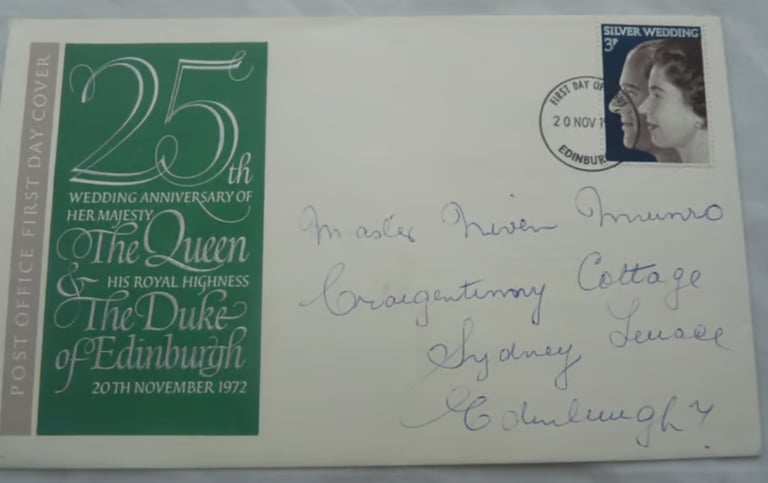 POST OFFICE FIRST DAY COVER
25th
WEDDING ANNIVERSARY OF
HER MAJESTY
The Queen
& HIS ROYAL HIGHNESS
The Duke
of Edinburgh
20TH NOVEMBER 1972
SILVER WEDDING
3P
FIRST DAY OF
20 NOV
EDINBUR
Master Niven Munro
Craigentinny Cottage
Sydney Terrace
Edinburgh 7.